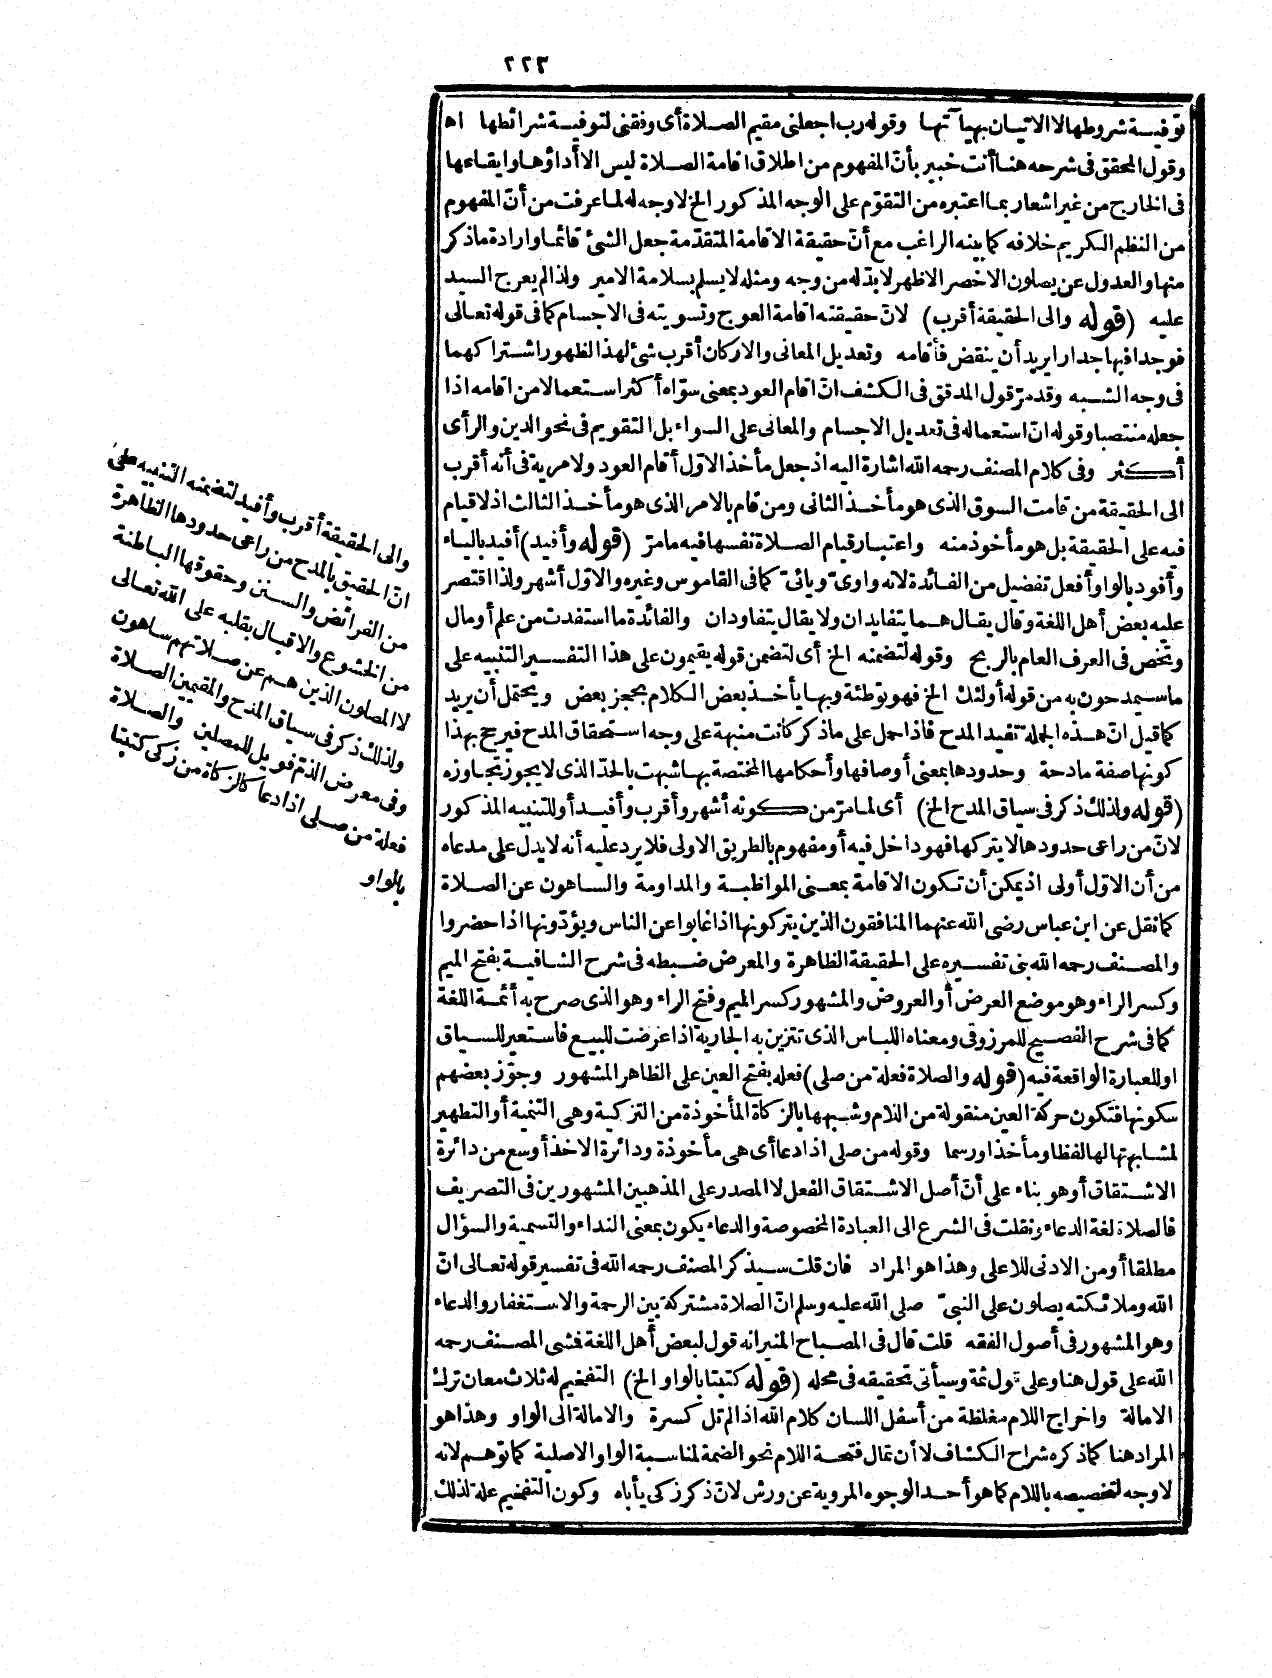 ٢٢٣
توفية شروطها لا الاتيان بهيآتها وقوله رب اجعلني مقيم الصلاة أى وفقنى لتوفية شرائطها اه
وقول المحقق فى شرحه هنا أنت خبير بأنّ المفهوم من اطلاق اقامة الصلاة ليس الا أداؤها وايقاعها
فى الخارج من غير اشعار بما اعتبره من التقوّم على الوجه المذكور الخ لا وجه له لما عرفت من أنّ المفهوم
من النظم الكريم خلافه كما بينه الراغب مع أنّ حقيقة الاقامة المتقدّمة جعل الشئ قائما وارادة ماذكر
منها والعدول عن يصلون الاخصر الاظهر لا بدّ له من وجه ومثله لا يسلم بسلامة الامير ولذا لم يعرج السيد
عليه (قوله والى الحقيقة أقرب) لانّ حقيقته اقامة العوج وتسويته فى الاجسام كما فى قوله تعالى
فوجدا فيها جدارا يريد أن ينقض فأقامه وتعديل المعانى والاركان أقرب شئ لهذا لظهور اشتراكهما
فى وجه الشبه وقد مرّ قول المدقق فى الكشف انّ اقام العود بمعنى سوّاه أكثر استعمالا من اقامه اذا
جعله منتصبا وقوله انّ استعماله فى تعديل الاجسام والمعانى على السواء بل التقويم فى نحو الدين والرأى
أكثر وفى كلام المصنف رحمه الله اشارة اليه اذ جعل مأخذ الاوّل أقام العود ولا مرية فى أنه أقرب
الى الحقيقة من قامت السوق الذى هو مأخذ الثانى ومن قام بالامر الذى هو مأخذ الثالث اذ لا قيام
فيه على الحقيقة بل هو مأخوذ منه واعتبار قيام الصلاة نفسها فيه ما مرّ (قوله وأفيد) أفيد بالياء
وأفود بالواو أفعل تفضيل من الفائدة لانه واوىّ ويائىّ كما فى القاموس وغيره والاوّل أشهر ولذا اقتصر
عليه بعض أهل اللغة وقال يقال هما يتفايدان ولا يقال يتفاودان والفائدة ما استفدت من علم أو مال
وتخص فى العرف العام بالربح وقوله لتضمنه الخ أى لتضمن قوله يقيمون على هذا التفسير التنبيه على
ما سيمدحون به من قوله أولئك الخ فهو توطئة وبها يأخذ بعض الكلام بحجز بعض ويحتمل أن يريد
كما قيل انّ هذه الجملة تفيد المدح فاذا حمل على ما ذكر كانت منبهة على وجه استحقاق المدح فيرجح بهذا
كونها صفة مادحة وحدودها بمعنى أوصافها وأحكامها المختصة بها شبهت بالحدّ الذى لا يجوز تجاوزه
(قوله ولذلك ذكر فى سياق المدح الخ) أى لما مرّ من كونه أشهر وأقرب وأفيد أو للتنبيه المذكور
لانّ من راعى حدودها لا يتركها فهو داخل فيه أو مفهوم بالطريق الاولى فلا يرد عليه أنه لا يدل على مدعاه
من أن الاوّل أولى اذ يمكن أن تكون الاقامة بمعنى المواظبة والمداومة والساهون عن الصلاة
كما نقل عن ابن عباس رضى الله عنهما المنافقون الذين يتركونها اذا غابوا عن الناس ويؤدّونها اذا حضروا
والمصنف رحمه الله بنى تفسيره على الحقيقة الظاهرة والمعرض ضبطه فى شرح الشافية بفتح الميم
وكسر الراء وهو موضع العرض أو العروض والمشهور كسر الميم وفتح الراء وهو الذى صرح به أئمة اللغة
كما فى شرح الفصيح للمرزوقى ومعناه اللباس الذى تتزين به الجارية اذا عرضت للبيع فاستعير للسياق
او للعبارة الواقعة فيه (قوله والصلاة فعلة من صلى) فعلة بفتح العين على الظاهر المشهور وجوّز بعضهم
سكونها فتكون حركة العين منقولة من اللام وشبهها بالزكاة المأخوذة من التزكية وهى التنمية أو التطهير
لمشابهتها لها لفظا ومأخذا ورسما وقوله من صلى اذا دعا أى هى مأخوذة ودائرة الاخذ أوسع من دائرة
الاشتقاق أو هو بناء على أنّ أصل الاشتقاق الفعل لا المصدر على المذهبين المشهورين فى التصريف
فالصلاة لغة الدعاء ونقلت فى الشرع الى العبادة المخصوصة والدعاء يكون بمعنى النداء والتسمية والسؤال
مطلقا أو من الادنى للاعلى وهذا هو المراد فان قلت سيذكر المصنف رحمه الله فى تفسير قوله تعالى انّ
الله وملائكته يصلون على النبىّ صلى الله عليه وسلم انّ الصلاة مشتركة بين الرحمة والاستغفار والدعاء
وهو المشهور فى أصول الفقه قلت قال فى المصباح المنير انه قول لبعض أهل اللغة فمشى المصنف رحمه
الله على قول هنا وعلى قول ثمة وسيأتى تحقيقه فى محله (قوله كتبتا بالواو الخ) التفخيم له ثلاث معان ترك
الامالة واخراج اللام مغلظة من أسفل اللسان كلام الله اذا لم تل كسرة والامالة الى الواو وهذا هو
المراد هنا كما ذكره شراح الكشاف لا أن تمال فتحة اللام نحو الضمة لمناسبة الواو الاصلية كما توهم لانه
لا وجه لتخصيصه باللام كما هو أحد الوجوه المروية عن ورش لانّ ذكر زكى يأباه وكون التفخيم علة لذلك
والى الحقيقة أقرب وأفيد لتضمنه التنبيه على
انّ الحقيق بالمدح من راعى حدودها الظاهرة
من الفرائض والسنن وحقوقها الباطنة
من الخشوع والاقبال بقلبه على الله تعالى
لا المصلون الذين هم عن صلاتهم ساهون
ولذلك ذكر فى سياق المدح والمقيمين الصلاة
وفى معرض الذمّ فويل للمصلين والصلاة
فعلة من صلى اذا دعا كالزكاة من زكى كتبتا
بالواو